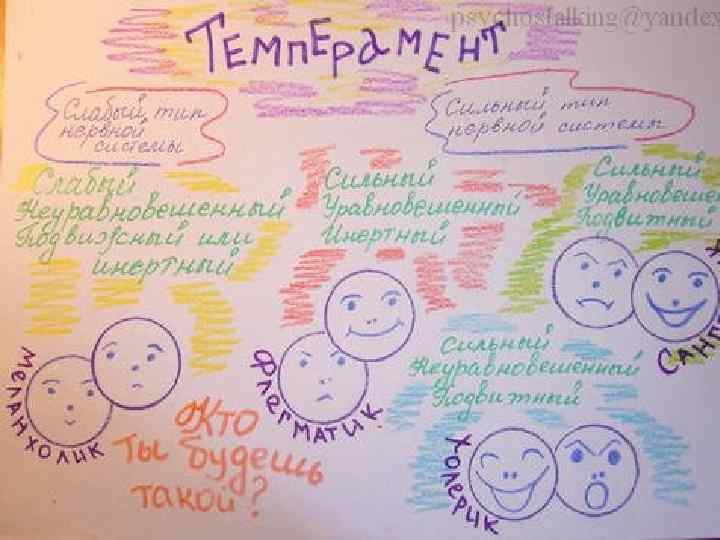 psychostalking@yandex
ТЕМПЕРАМЕНТ
Слабый тип
нервной
системы
Сильный тип
нервной системы
Слабый
Неуравновешенный
Подвижный или
инертный
Сильный
Уравновешенный
Инертный
Сильный
Уравновеше
Подвитный
Сильный
Неуравновешенный
Подвитный
МЕЛАНХОЛИК
ФЛЕГМАТИК
САНГ
ХОЛЕРИК
Кто
ты будешь
такой?